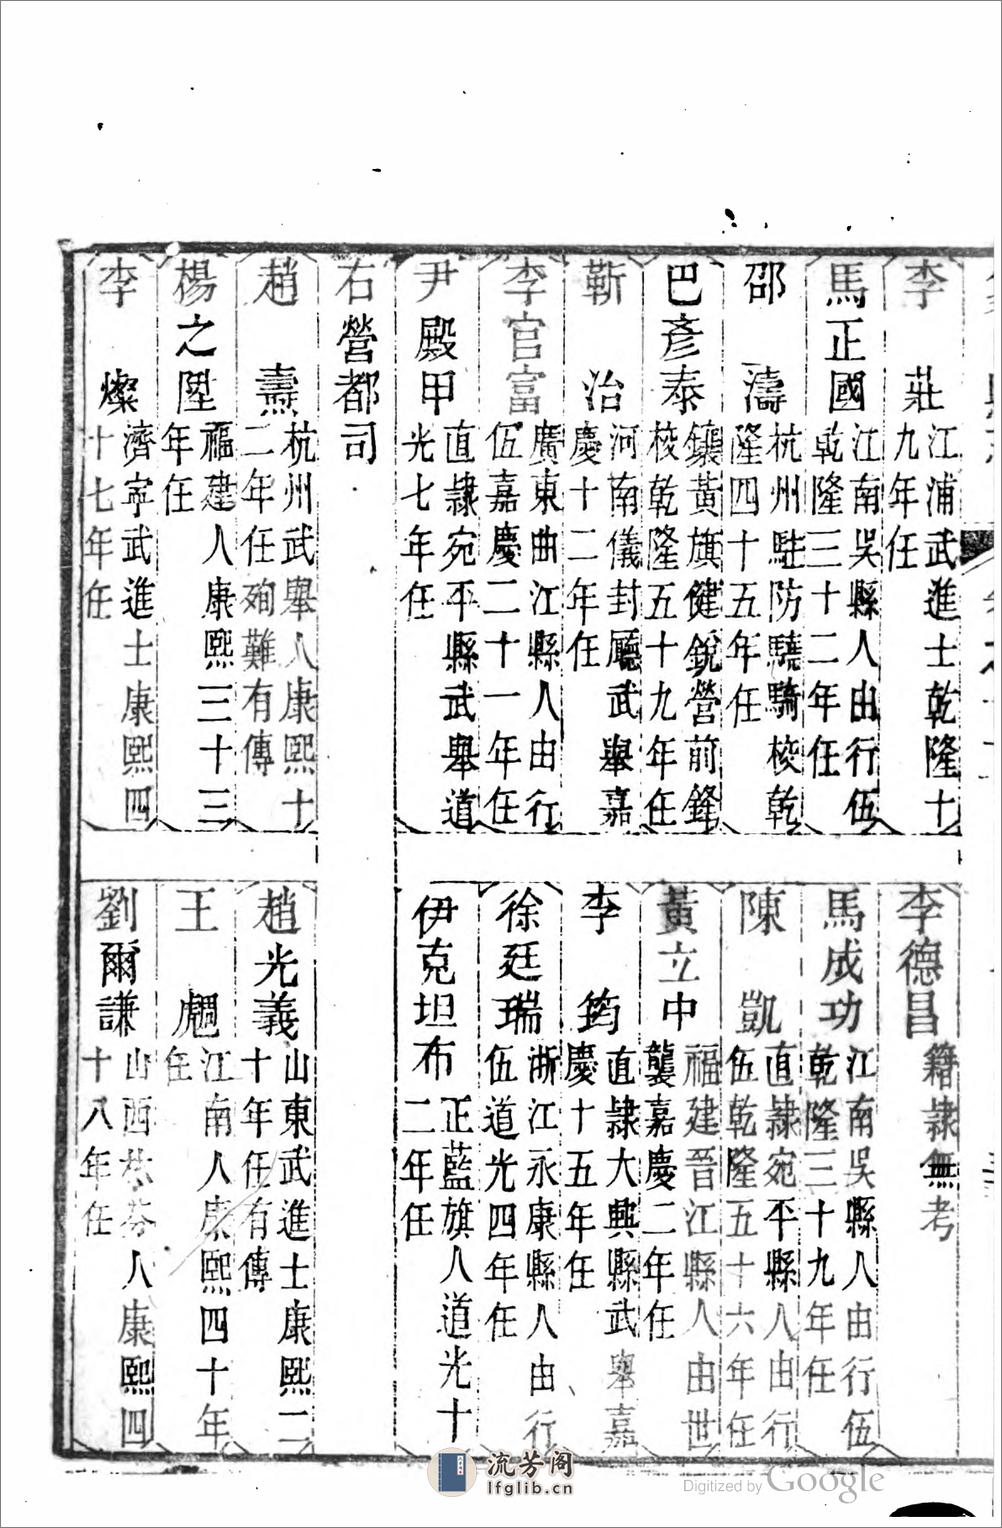 李　莊江浦武進士乾隆十九年任
李德昌籍隸無考
馬正國江南吳縣人由行伍乾隆三十二年任
馬成功江南吳縣人由行伍乾隆三十九年任
邵　濤杭州駐防驍騎校乾隆四十五年任
陳　凱直隸宛平縣人由行伍乾隆五十六年任
巴彥泰鑲黃旗健銳營前鋒校乾隆五十九年任
黃立中福建晉江縣人由世襲嘉慶二年任
靳　治河南儀封廳武舉嘉慶十二年任
李　筠直隸大興縣武舉嘉慶十五年任
李官富廣東曲江縣人由行伍嘉慶二十一年任
徐廷瑞浙江永康縣人由行伍道光四年任
尹殿甲直隸宛平縣武舉道光七年任
伊克坦布正藍旗人道光十二年任
右營都司
趙　燾杭州武舉人康熙十二年任殉難有傳
趙光義山東武進士康熙二十年任有傳
楊之陞福建人康熙三十三年任
王　江南人康熙四十年任
李　燦濟寧武進士康熙四十七年任
劉爾謙山西人康熙四十八年任
流芳阁
lfglib.cn
Digitized by Google